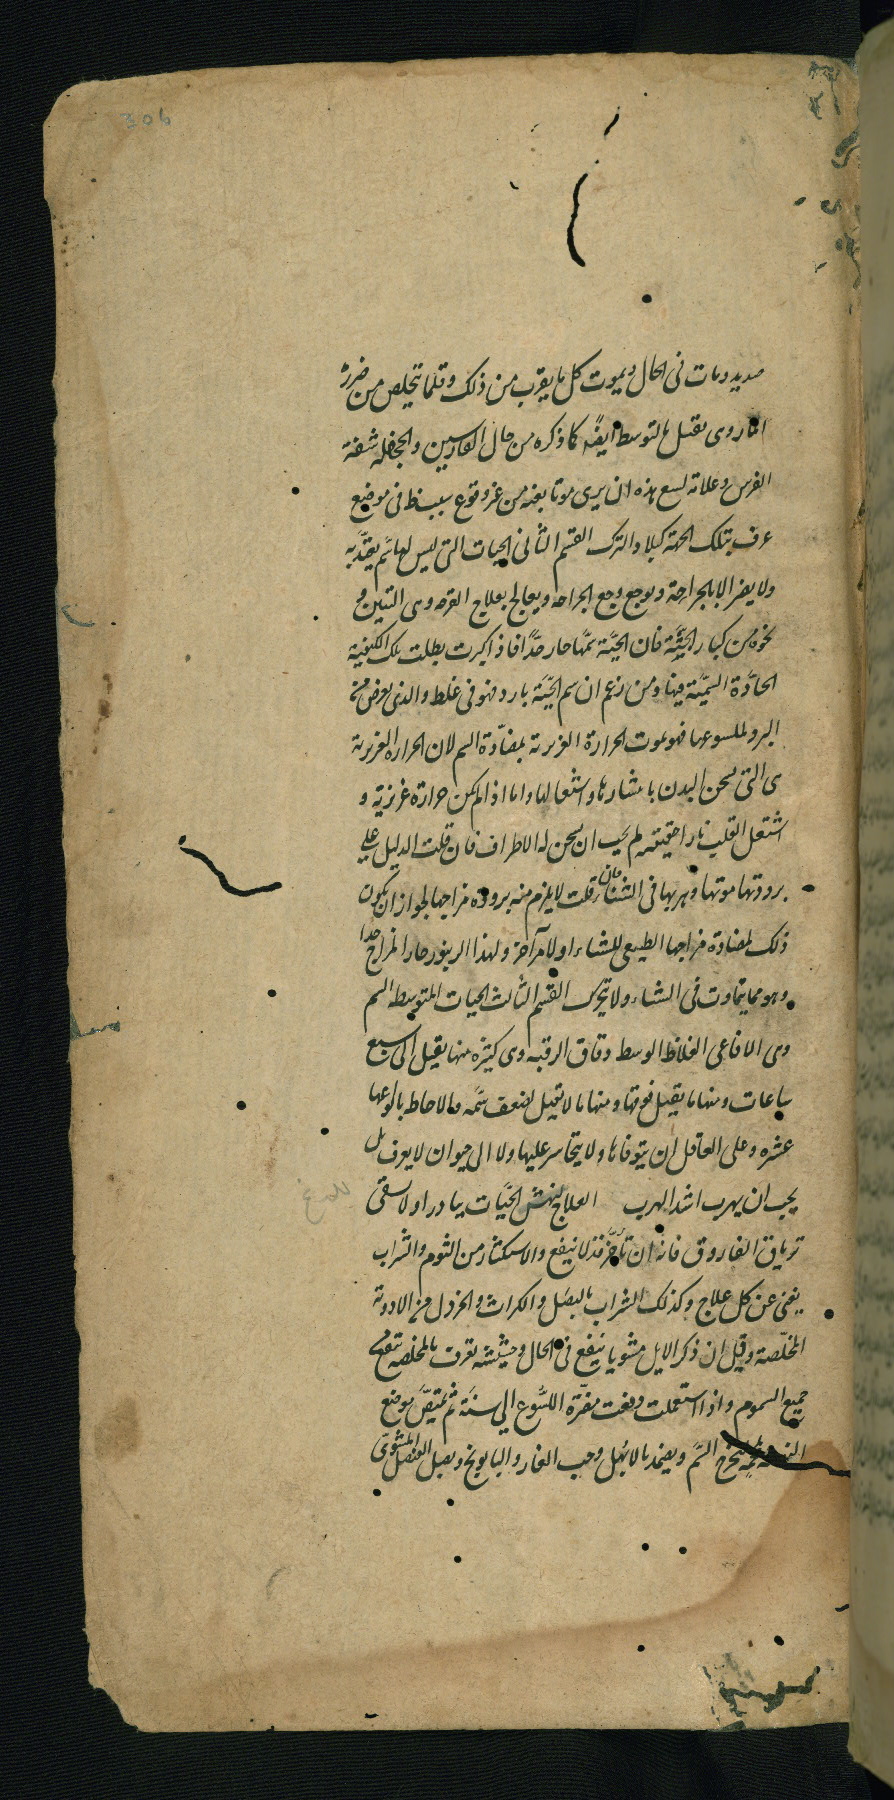 306
صديد ومات فى الحال ويموت كل ما يقرب من ذلك وقلما يتخلص من ضرره
اما روى تقتل بالتوسط ايضًا كما ذكره من حال الفارسين والجحفله شفة
الفرس وعلامة لسع هذه ان يرى موتا بغتة من غير وقوع سبب ظ فى موضع
عرف بتلك الحية كبلاد الترك القسم الثانى الحيات التى ليس لها سم يعتدّ به
ولا يضر الا بالجراحة ويوجع وجع الجراحه ويعالج بعلاج القرحه وهى التنين و
نحوه من كبار الحيّة فان الحيّة سمّها حار جدًّا فاذا كبرت بطلت تلك الكيفية
الحادّة السمّيّة فيها ومن زعم ان سم الحيّة بارد فهو فى غلط والذى يعرض من
البرد لملسوعها فهو بموت الحرارة الغريزية بمضادّة السم لان الحرارة الغريزية
هى التى تسخن البدن بانتشارها واشتعالها واما اذا لم تكن حرارة غريزية و
اشتعل القلب نارا حقيقة لم يجب ان تسخن له الاطراف فان قلت الدليل على
برودتها موتها وهربها فى الشتاء قلت لا يلزم منه برودة مزاجها لجواز ان يكون
ذلك لمضادة مزاجها الطبيعى للشتاء او لامر آخر ولهذا الزنبور حار المزاج جدا
وهو مما يتماوت فى الشتاء ولا يتحرك القسم الثالث الحيات المتوسطة السم
وهى الافاعى الغلاظ الوسط دقاق الرقبه وهى كثيرة منها يقتل الى سبع
ساعات ومنها ما يقتل فوقها ومنها ما لا تقتل لضعف سمّه والاحاطه بانواعها
عسره وعلى العاقل ان يتوقاها ولا يتجاسر عليها ولا الى حيوان لا يعرف بل
يجب ان يهرب اشد الهرب العلاج لنهش الحيّات يبادر اولا بسقى
ترياق الفاروق فانه ان تأخّر فقد لا ينفع والاستكثار من الثوم والشراب
يغنى عن كل علاج وكذلك الشراب بالبصل والكراث والخردل من الادوية
المخلّصة وقيل ان ذكر الايل مشويا ينفع فى الحال وحشيشة تعرف بالمخلصه تنفع من
جميع السموم واذا استعملت دفعت مضرّة اللسوع الى سنة ثم يمتصّ موضع
السم ويضمد بالابهل وحب الغار والبابونج وبصل العنصل المشوىّ